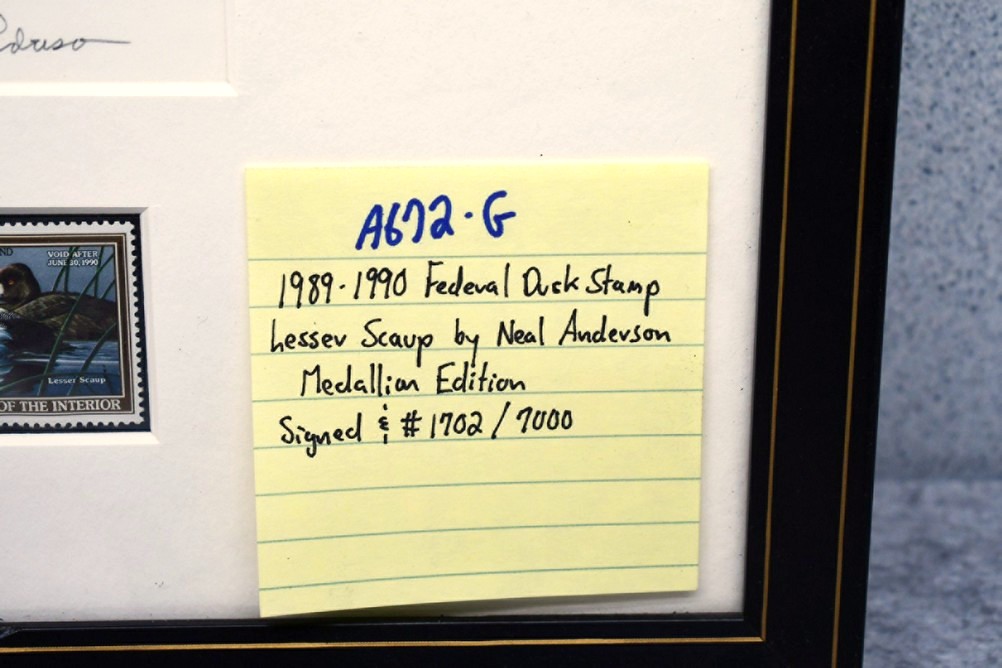 VOID AFTER
JUNE 30, 1990
Lesser Scaup
OF THE INTERIOR
A672-G
1989-1990 Federal Duck Stamp
Lesser Scaup by Neal Anderson
Medallion Edition
Signed & #1702/7000